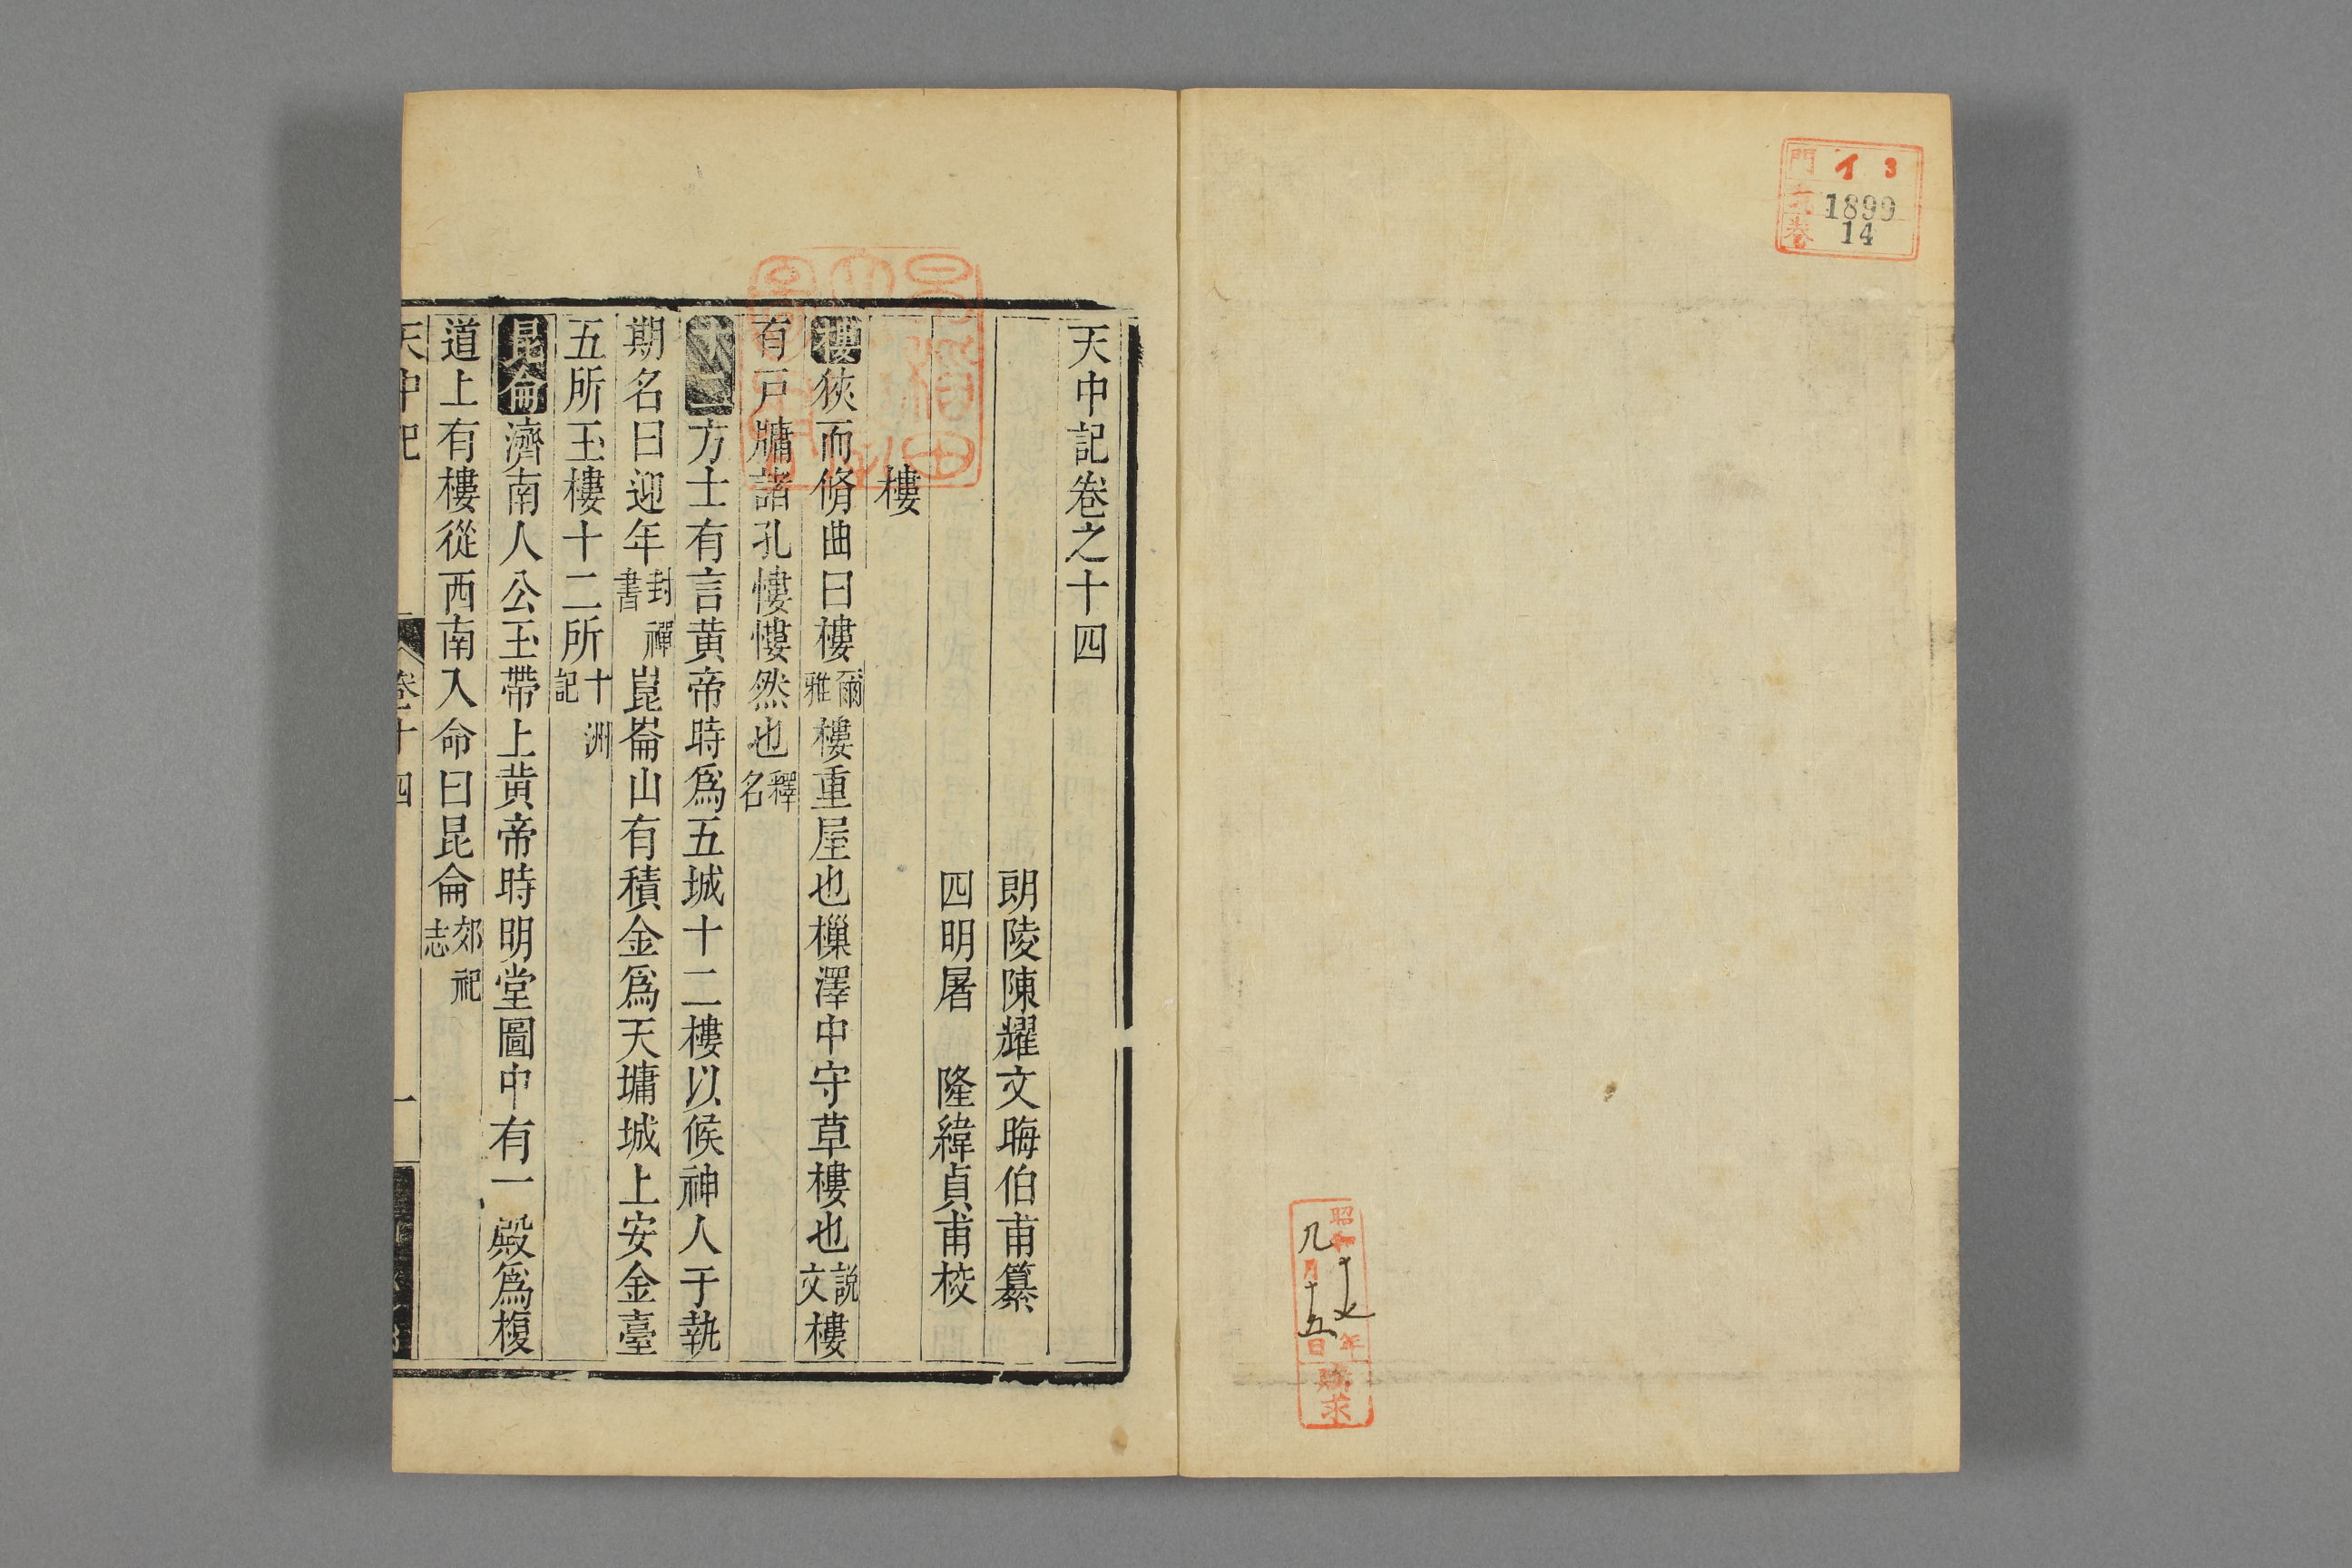 門 イ 3
1899
卷 14
昭和十七年
九月十五日
購求
天中記卷之十四
朗陵陳耀文晦伯甫纂
四明屠　隆緯貞甫校
樓
樓狹而脩曲曰樓爾雅樓重屋也樔澤中守草樓也說文樓
有戶牖諸孔慺慺然也釋名
十二方士有言黃帝時爲五城十二樓以候神人于執
期名曰迎年封禪書崑崙山有積金爲天墉城上安金臺
五所玉樓十二所十洲記
昆侖濟南人公玉帶上黃帝時明堂圖中有一殿爲複
道上有樓從西南入命曰昆侖郊祀志
天中記　卷十四　一